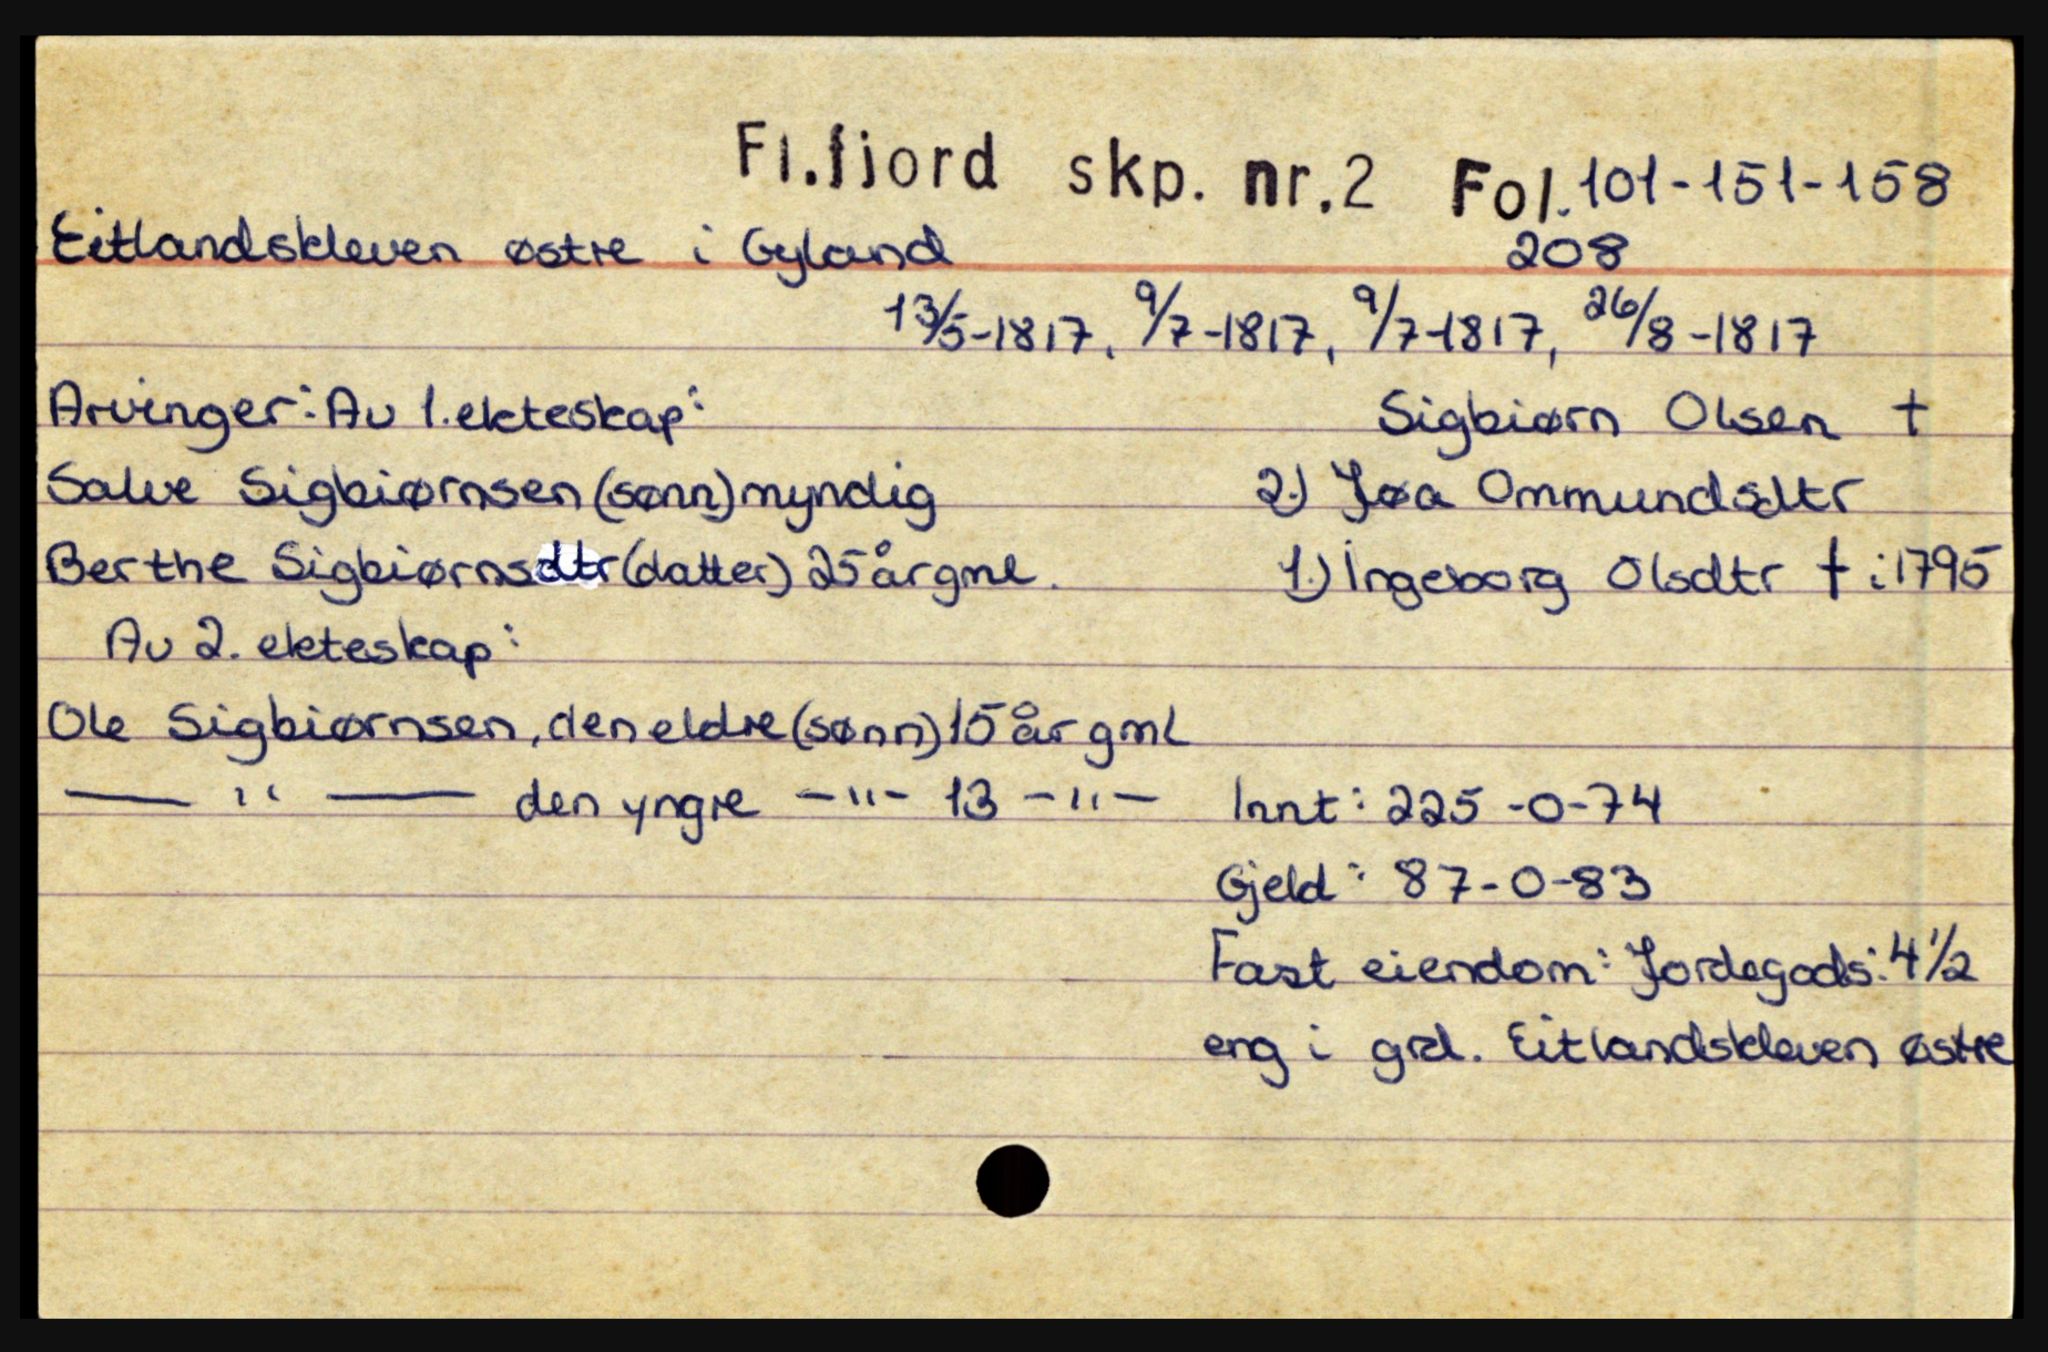 Fl.fjord skp. nr.2 Fol. 101-151-158
Eitlandskleven østre i Gyland 208
13/5-1817, 9/7-1817, 9/7-1817, 26/8-1817
Arvinger: Av 1. ekteskap: Sigbiørn Olsen †
Salve Sigbiørnsen (sønn) myndig 2.) Jøa Ommundsdtr
Berthe Sigbiørnsdtr (datter) 25 år gml. 1.) Ingeborg Olsdtr † i 1795
Av 2. ekteskap:
Ole Sigbiørnsen, den eldre (sønn) 15 år gml
— " — den yngre -"- 13 -"- Innt: 225-0-74
Gjeld: 87-0-83
Fast eiendom: Jordegods: 4 1/2
eng i grd. Eitlandskleven østre